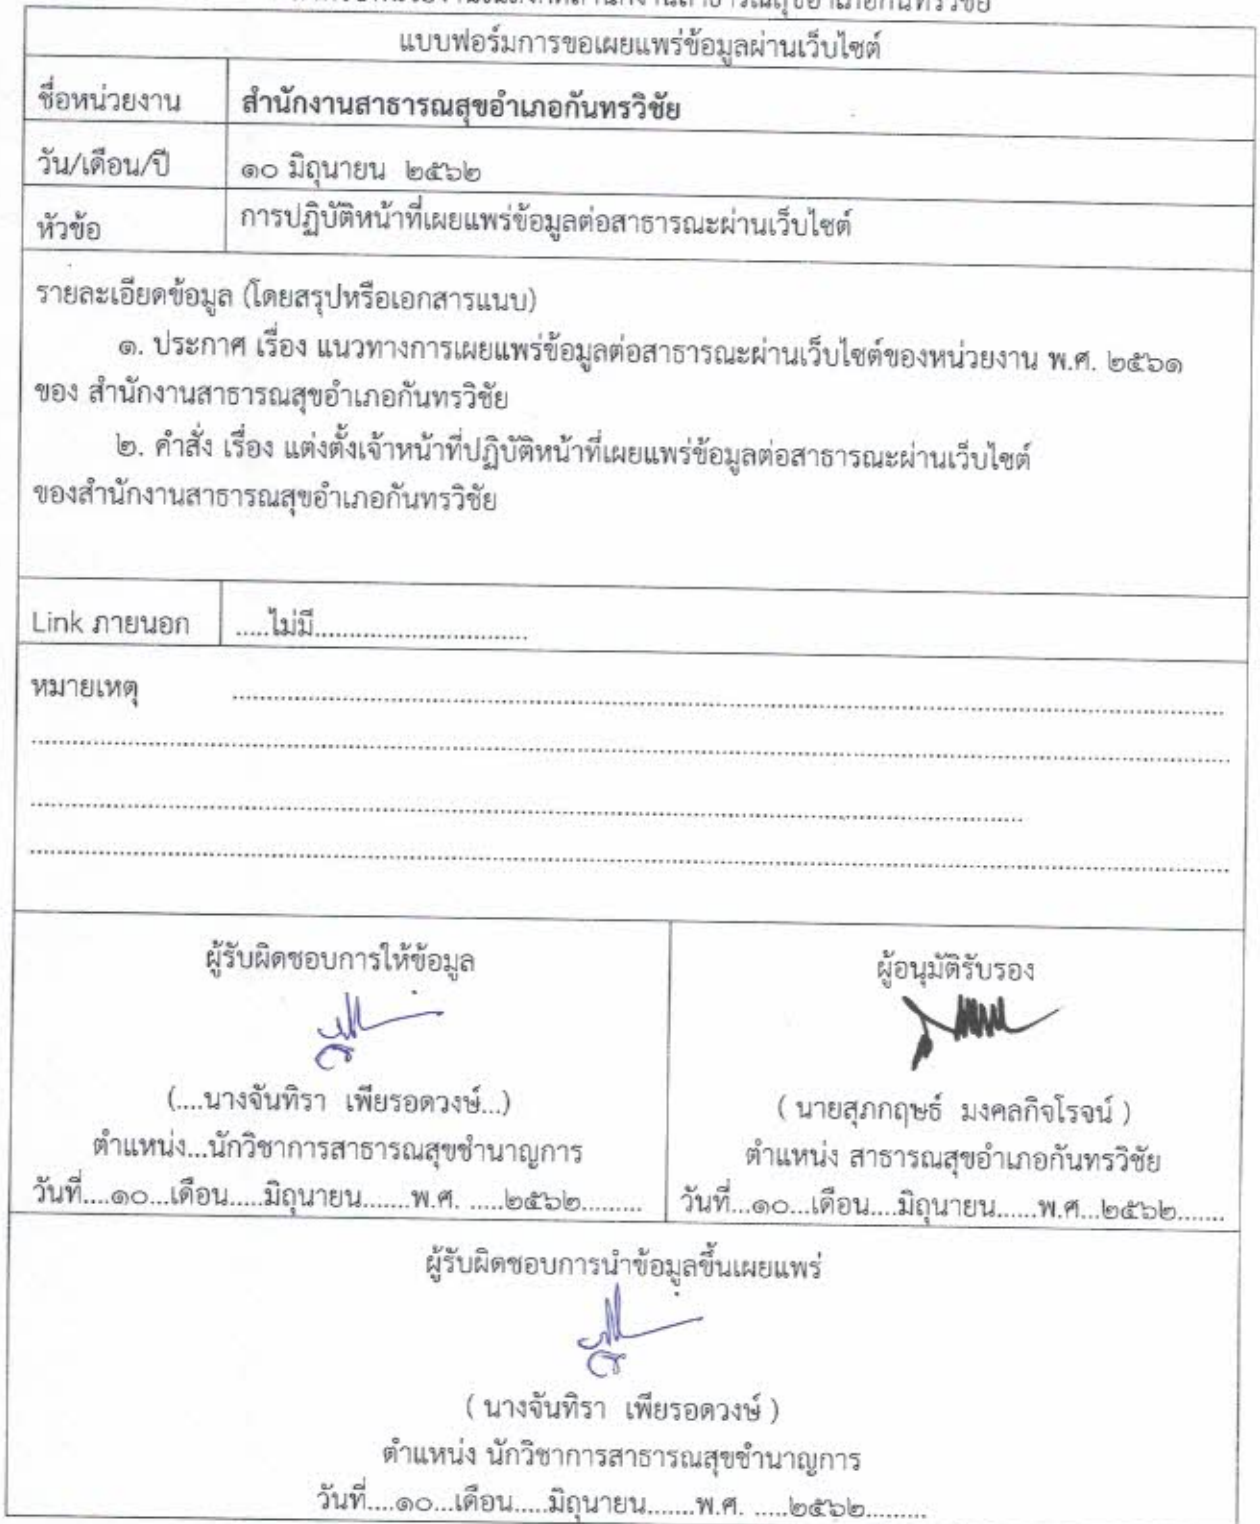 แบบฟอร์มการขอเผยแพร่ข้อมูลผ่านเว็บไซต์
ชื่อหน่วยงาน สำนักงานสาธารณสุขอำเภอกันทรวิชัย
วัน/เดือน/ปี ๑๐ มิถุนายน ๒๕๖๒
หัวข้อ การปฏิบัติหน้าที่เผยแพร่ข้อมูลต่อสาธารณะผ่านเว็บไซต์
รายละเอียดข้อมูล (โดยสรุปหรือเอกสารแนบ)
๑. ประกาศ เรื่อง แนวทางการเผยแพร่ข้อมูลต่อสาธารณะผ่านเว็บไซต์ของหน่วยงาน พ.ศ. ๒๕๖๑
ของ สำนักงานสาธารณสุขอำเภอกันทรวิชัย
๒. คำสั่ง เรื่อง แต่งตั้งเจ้าหน้าที่ปฏิบัติหน้าที่เผยแพร่ข้อมูลต่อสาธารณะผ่านเว็บไซต์
ของสำนักงานสาธารณสุขอำเภอกันทรวิชัย
Link ภายนอก .....ไม่มี..............................
หมายเหตุ
ผู้รับผิดชอบการให้ข้อมูล
(....นางจันทิรา เพียรอดวงษ์...)
ตำแหน่ง...นักวิชาการสาธารณสุขชำนาญการ
วันที่....๑๐...เดือน.....มิถุนายน.......พ.ศ. .....๒๕๖๒.........
ผู้อนุมัติรับรอง
( นายสุภกฤษธ์ มงคลกิจโรจน์ )
ตำแหน่ง สาธารณสุขอำเภอกันทรวิชัย
วันที่...๑๐...เดือน....มิถุนายน......พ.ศ...๒๕๖๒.......
ผู้รับผิดชอบการนำข้อมูลขึ้นเผยแพร่
( นางจันทิรา เพียรอดวงษ์ )
ตำแหน่ง นักวิชาการสาธารณสุขชำนาญการ
วันที่....๑๐...เดือน.....มิถุนายน.......พ.ศ. .....๒๕๖๒.........